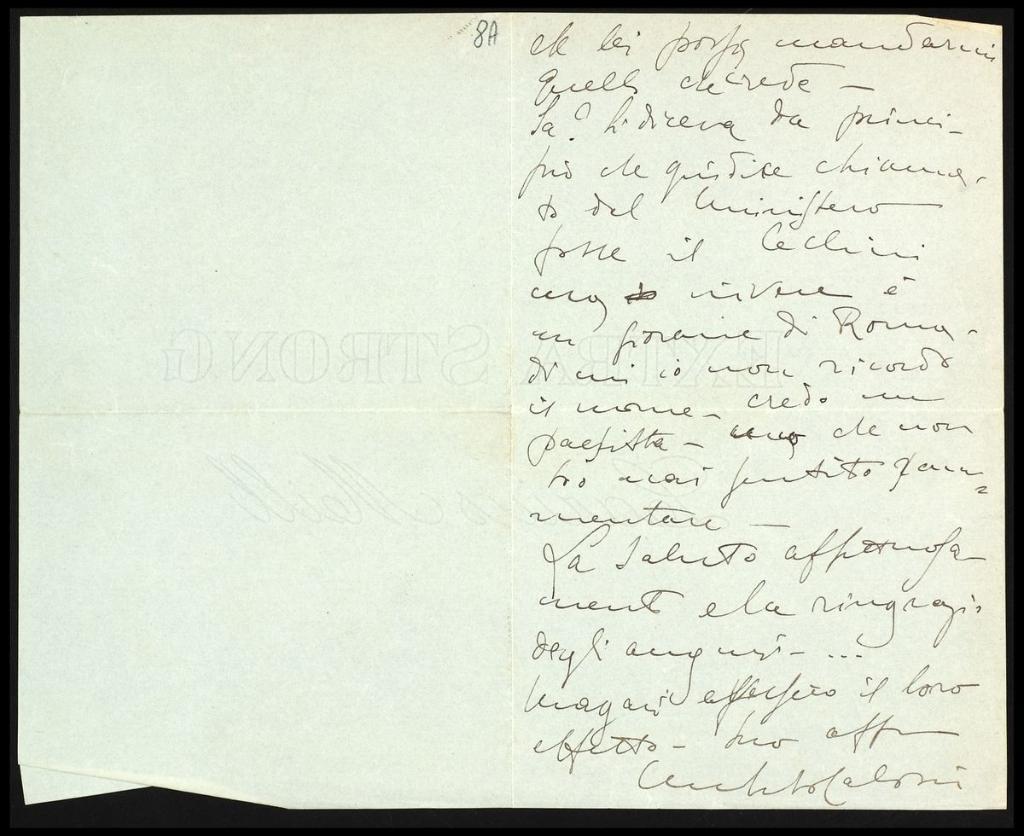 8A
che lei possa mandarmi
quello che crede –
Sa? Si diceva da princi-
pio che giudice chiama-
to dal Ministero
fosse il Cecchini
ma invece è
un giovane di Roma -
di cui io non ricordo
il nome – credo un
paesista – che non
ho mai sentito ram=
mentare –
La saluto affettuosa
mente e la ringrazio
degli auguri – ...
Magari avessero il loro
effetto – Suo aff
EXTRA STRONG